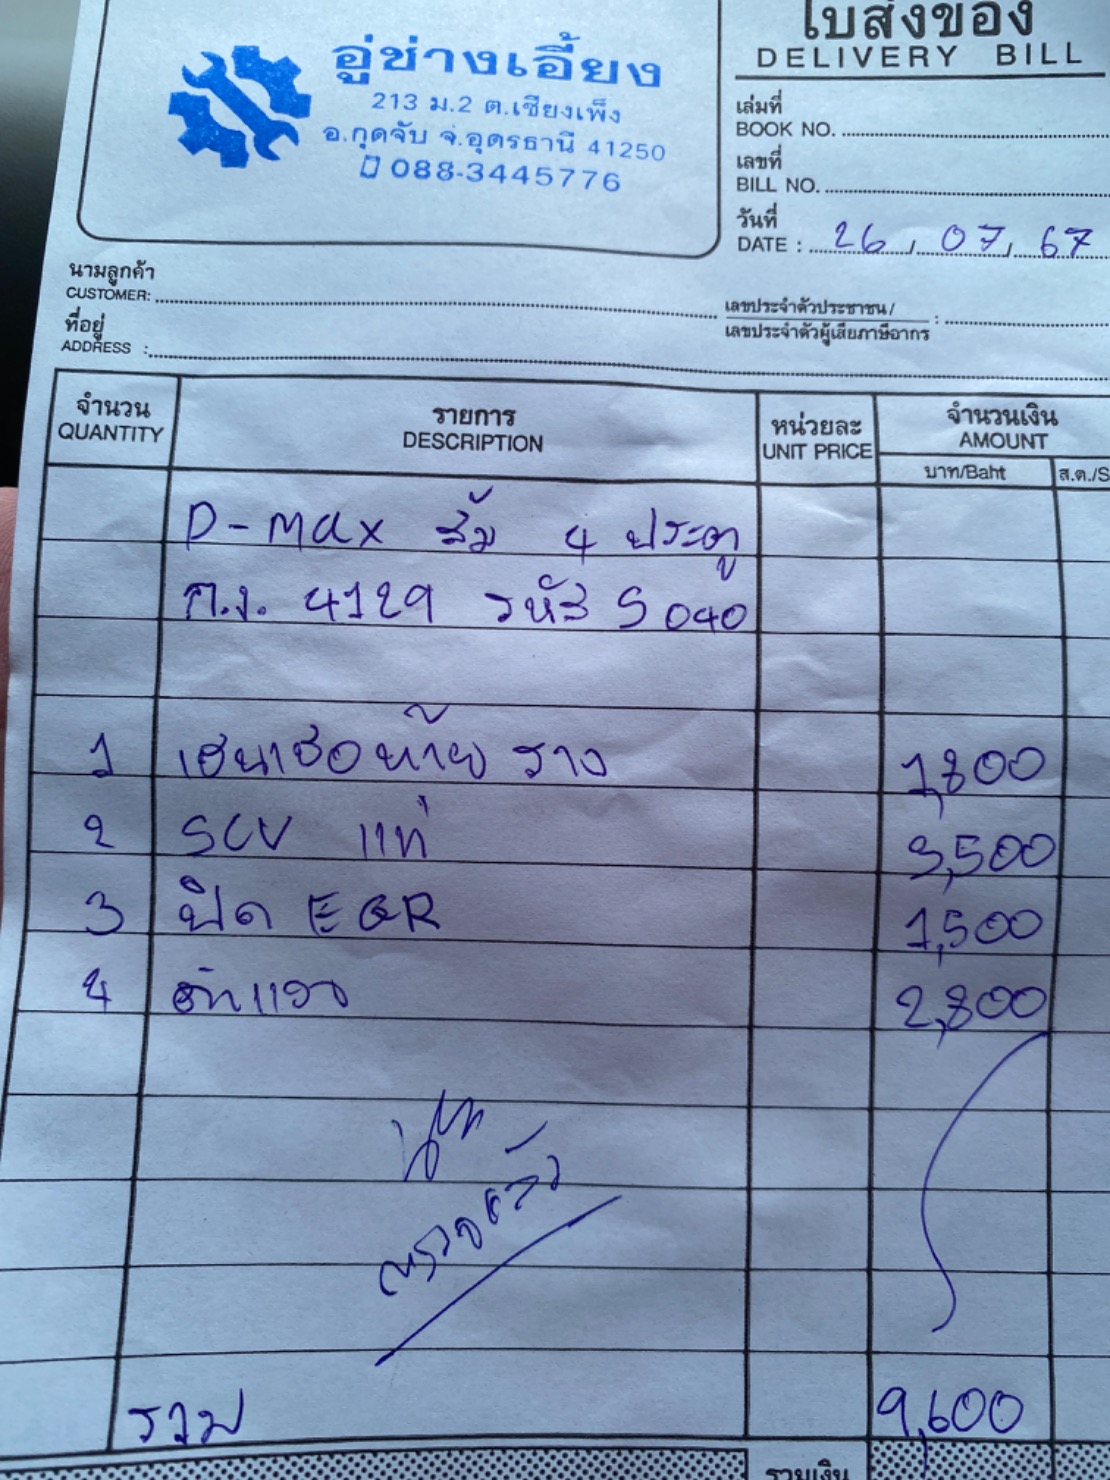 อู่ช่างเอี้ยง
213 ม.2 ต.เชียงเพ็ง
อ.กุดจับ จ.อุดรธานี 41250
088-3445776
ใบส่งของ
DELIVERY BILL
เล่มที่
BOOK NO.
เลขที่
BILL NO.
วันที่
DATE : 26 / 07 / 67
นามลูกค้า
CUSTOMER:
ที่อยู่
ADDRESS :
เลขประจำตัวประชาชน /
เลขประจำตัวผู้เสียภาษีอากร :
จำนวน รายการ หน่วยละ จำนวนเงิน
QUANTITY DESCRIPTION UNIT PRICE AMOUNT
บาท/Baht ส.ต./S
D-max ส้ม 4 ประตู
ก.ง. 4129 รหัส S 040
1 เซนเซอท้ายราง 1,800
2 SCV แท่ 3,500
3 ปิด EGR 1,500
4 2,800
ตรวจแล้ว
รวม 9,600
รวมเงิน